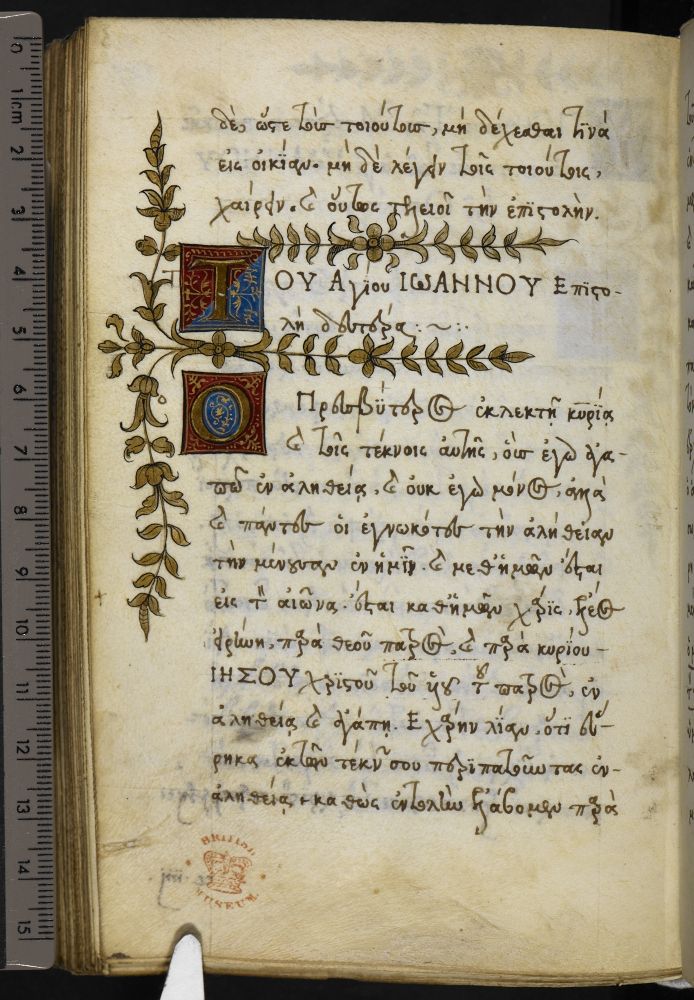 δὲ, ὥστε τοῖς τοιούτοις, μὴ δέχεσθαι τινὰ
εἰς οἰκίαν. μὴ δὲ λέγειν τοῖς τοιούτοις,
χαίρειν. καὶ οὕτως τελειοῖ τὴν ἐπιστολήν.
ΤΟΥ Αγίου ΙΩΑΝΝΟΥ Επιστο-
λὴ δευτέρα :~:
Ο Πρεσβύτερος ἐκλεκτῇ κυρίᾳ
καὶ τοῖς τέκνοις αὐτῆς, οὓς ἐγὼ ἀγα-
πῶ ἐν ἀληθείᾳ, καὶ οὐκ ἐγὼ μόνος, ἀλλὰ
καὶ πάντες οἱ ἐγνωκότες τὴν ἀλήθειαν
τὴν μένουσαν ἐν ἡμῖν. καὶ μεθ' ἡμῶν ἔσται
εἰς τὸν αἰῶνα. ἔσται καθ' ἡμῶν χάρις, ἔλεος
εἰρήνη, παρὰ θεοῦ πατρὸς, καὶ παρὰ κυρίου
ΙΗΣΟΥ χριστοῦ τοῦ υἱοῦ τοῦ πατρὸς, ἐν
ἀληθείᾳ καὶ ἀγάπῃ. Εχάρην λίαν, ὅτι εὕ-
ρηκα ἐκ τῶν τέκνων σου περιπατοῦντας ἐν
ἀληθείᾳ, καθὼς ἐντολὴν ἐλάβομεν παρὰ
BRITISH MUSEUM
0 1cm 2 3 4 5 6 7 8 9 10 11 12 13 14 15